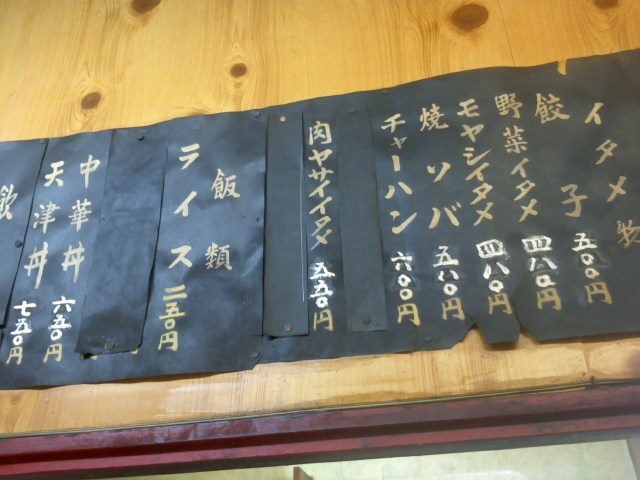 イタメ物
餃子 五〇〇円
野菜イタメ 四八〇円
モヤシイタメ 四八〇円
焼ソバ 五八〇円
チャーハン 六〇〇円
肉ヤサイイタメ 五五〇円
飯類
ライス 二五〇円
中華丼 六五〇円
天津丼 七五〇円
飲